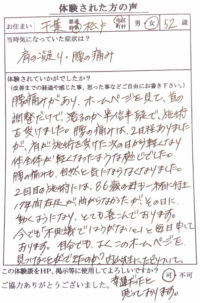 体験された方の声
お住まい 千葉 松戸 男・女 52 歳
当時気になっていた症状は?
肩の凝り・腰の痛み
体験されていかがでしたか?
(改善までの経過や感じた事、思った事などご自由にお書き下さい。)
腰痛があり、ホームページを見て、首の
調整だけで、治るのか半信半疑で、施術
を受けました。腰の痛みは、2日程ありました
が、肩が施術を受けた次の日から軽くなり
体全体が軽くなったような感じでした。
腰の痛みも、自然と気にならなくなりました。
2回目の施術には、86歳の母も一緒に付き
間、左の が曲がらなかったが、その日に、
動くようになり、とても喜んでおります。
今でも“不思議で しかたがない”と毎日申して
おります。自分でも、よくこのホームページを
見つけたなと
この体験談をHP、掲示等に使用してよろしいですか? 可・不可
ご協力ありがとうございました。
思っております。